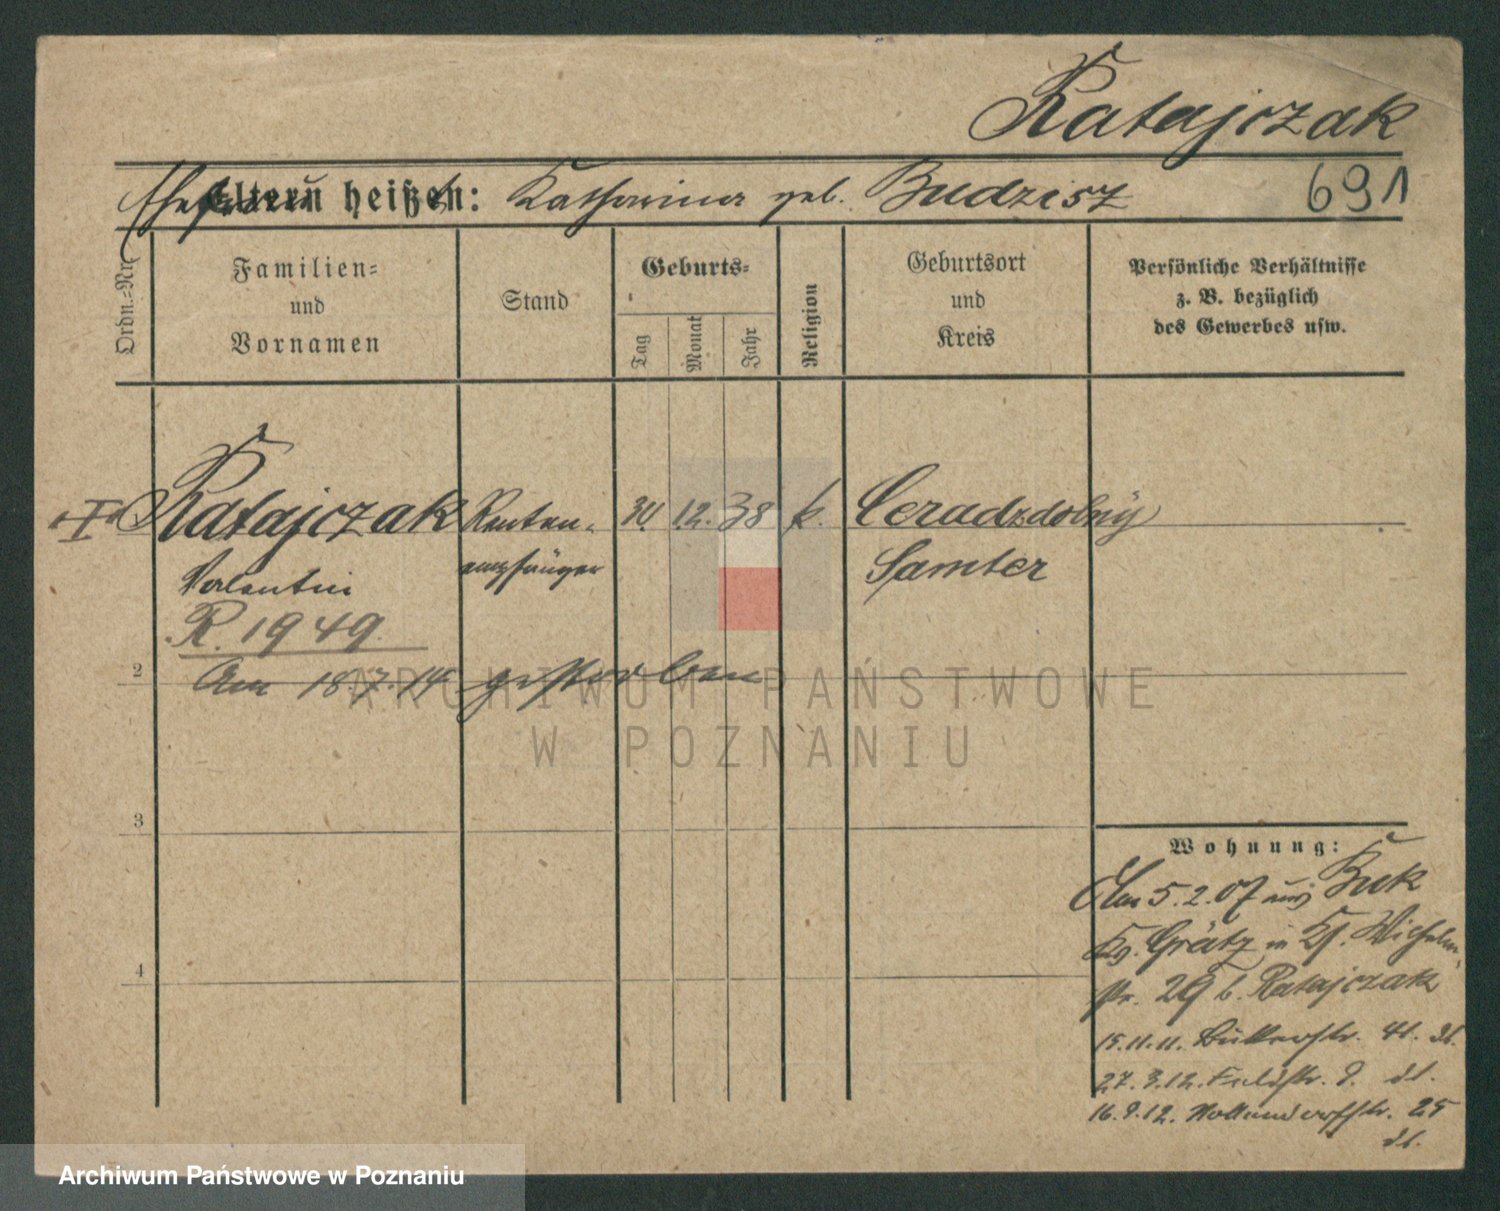 Ratajczak
Ehefrau Eltern heißen: Katharina geb. Budzisz 691
Ordn.=Nr.
Familien=
und
Vornamen
Stand
Geburts=
Tag
Monat
Jahr
Religion
Geburtsort
und
Kreis
Persönliche Verhältnisse
z. B. bezüglich
des Gewerbes usw.
Ratajczak Renten- 30 12. 38 k. Ceradzdolny
Valentin empfänger Samter
R. 1949.
2
Am 18.7.14 gestorben
3
4
Wohnung:
Am 5.2.07 aus Buk
Kr. Grätz in Wilhelm-
str. 29 b. Ratajczak
15.11.11.
27.3.12. Feldstr. 9.
16.9.12. 25
ARCHIWUM PAŃSTWOWE
W POZNANIU
Archiwum Państwowe w Poznaniu